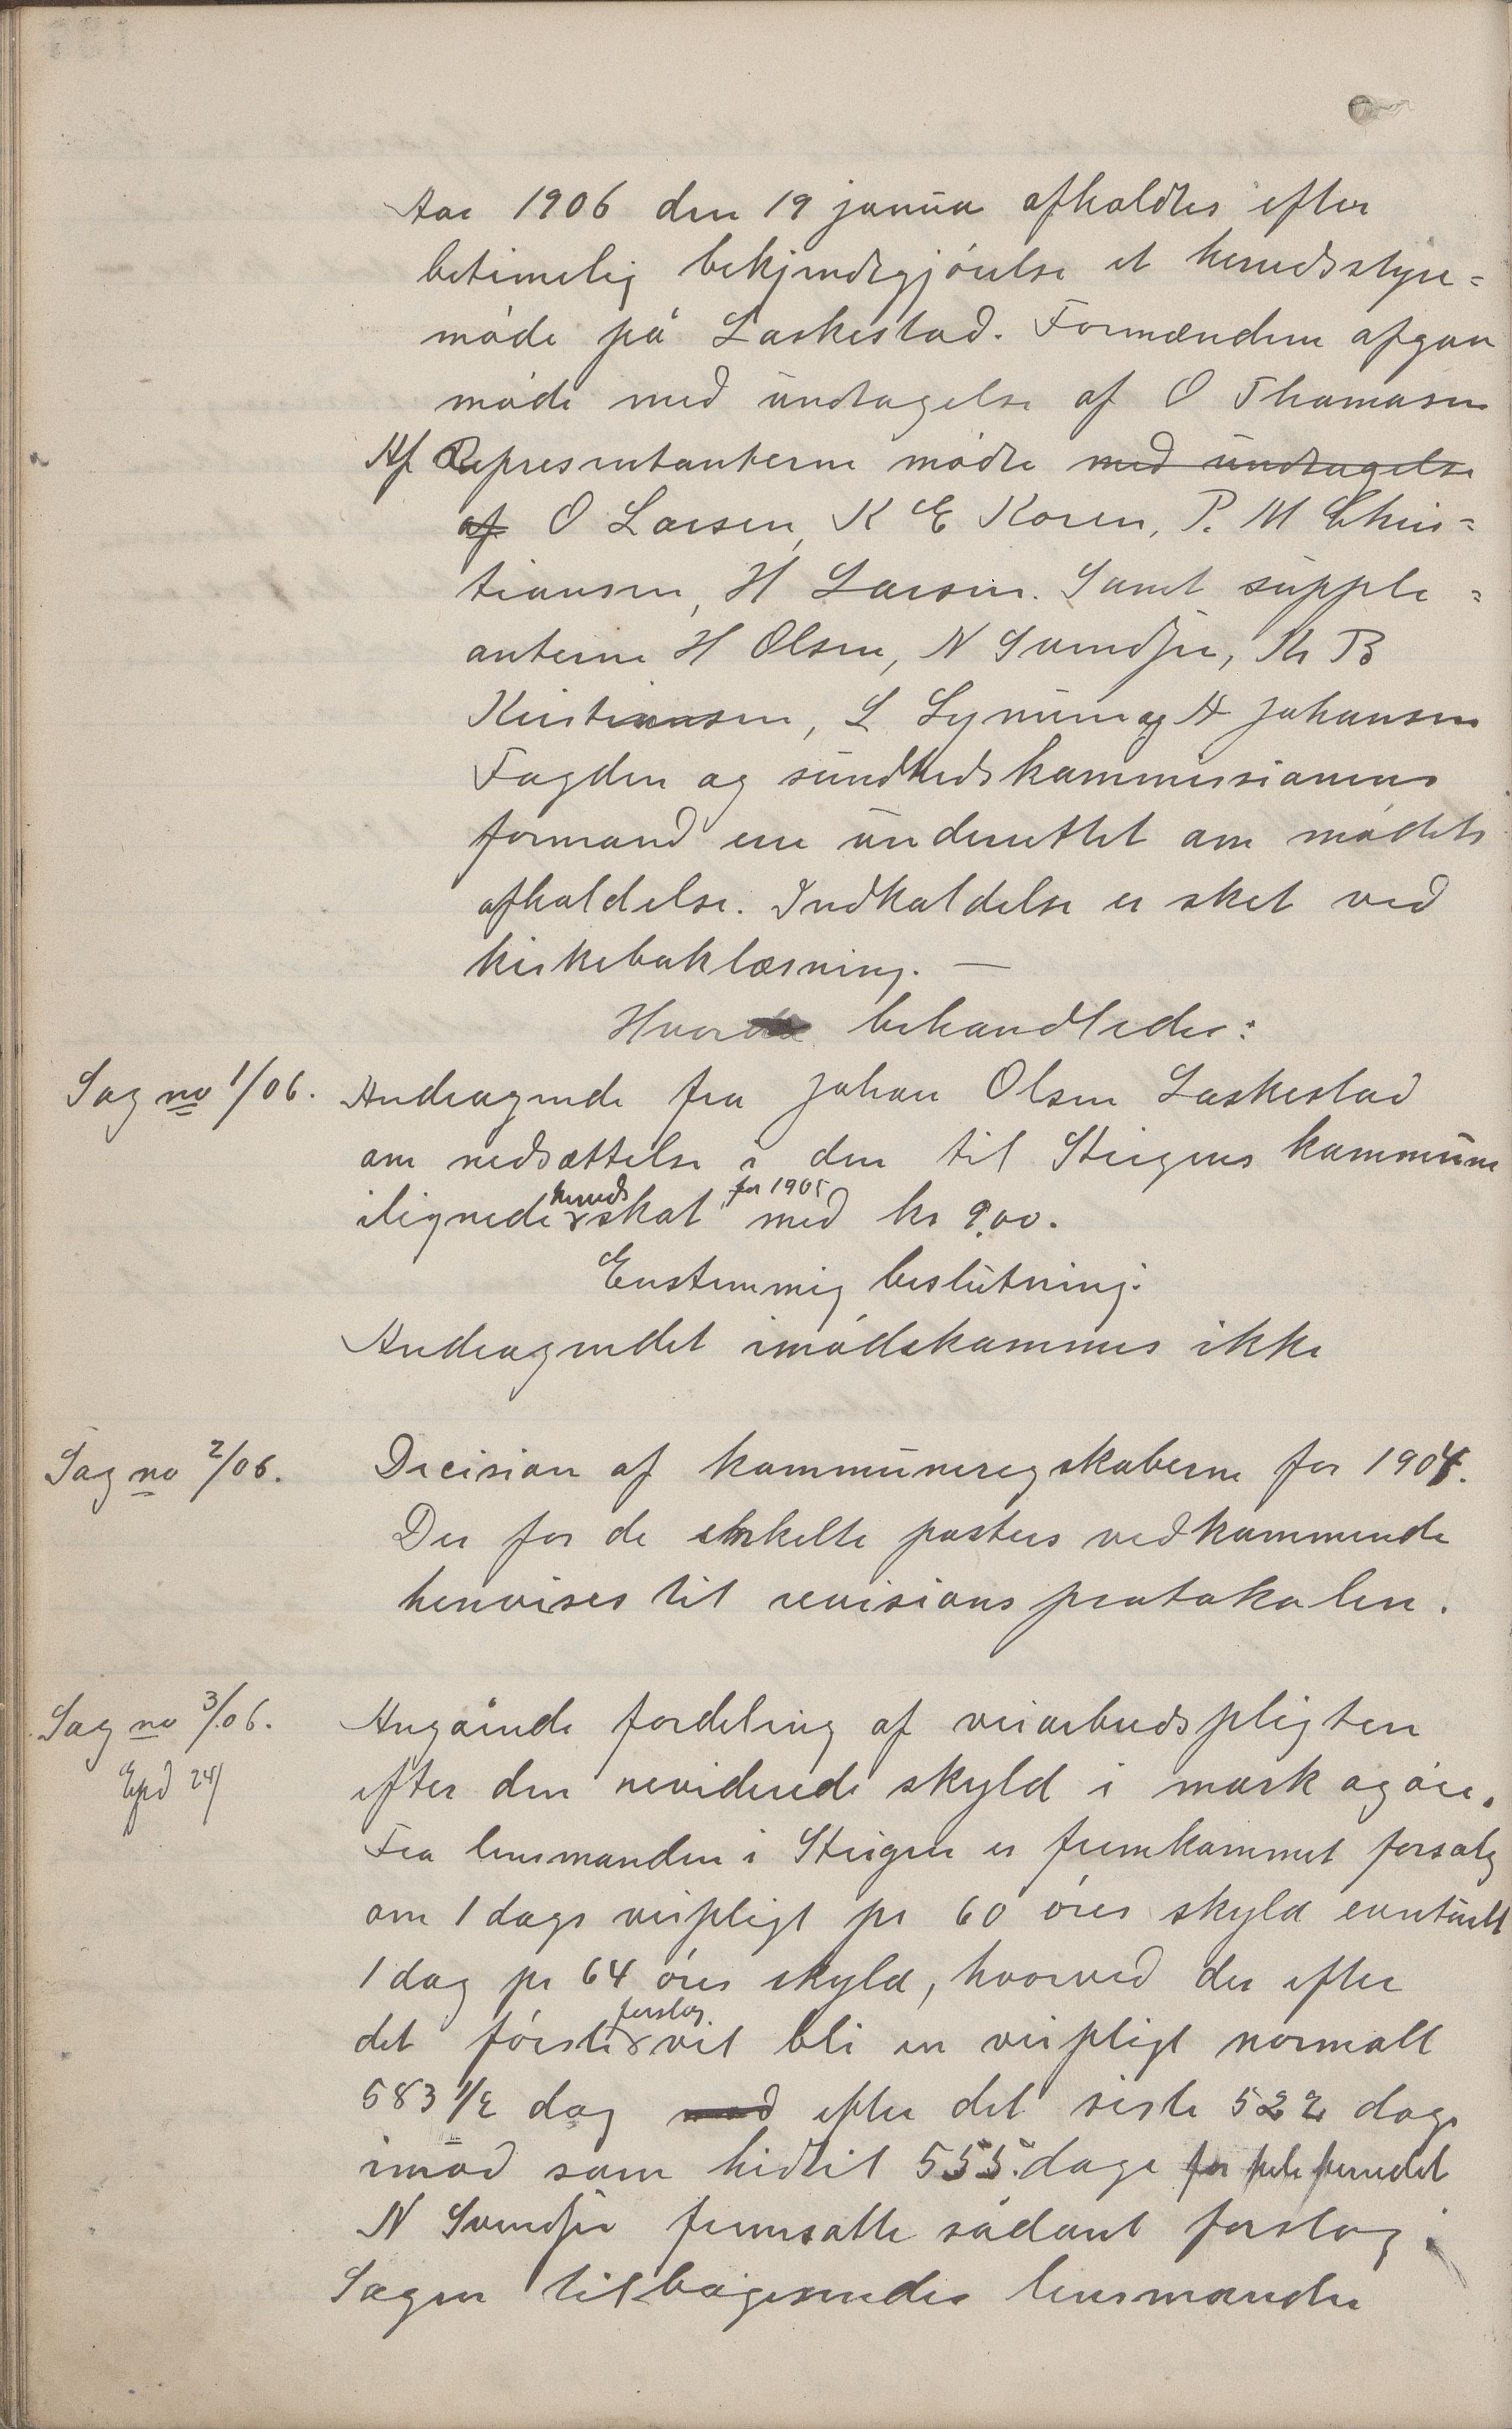 Aar 1906 den 19 januar afholdtes efter
betimelig bekjendtgjörelse et herredsstyre=
möde på Laskestad. Formændene afgav
möde med undtagelse af O Thomasen
Af Representanterne mödte med undtagelse
af O Larsen, K E Koren, P. M Chris=
tiansen, H Larsen. Samt supple=
anterne H Olsen, N Svendsen, Kr B
Kristiansen, L Lynum og A Johansen
Fogden og sundhedskommissionens
formand ere underrettet om mödets
afholdelse. Indkaldelse er sket ved
kirkebaklæsning. —
Hvor behandledes:
Sag no 1/06. Andragende fra Johan Olsen Laskestad
om nedsættelse i den til Steigens kommune
ilignede herredsskat for 1905 med kr 9.00.
Enstemmig beslutning:
Andragendet imödekommes ikke
Sag no 2/06. Decision af kommuneregskaberne for 1904.
Der for de enkelte posters vedkommende
henvises til revisionsprotokolen.
Sag no 3/06. Angående fordeling af veiarbeidspligten
Exp 24/ efter den reviderede skyld i mark og öre.
Fra lensmanden i Steigen er fremkommet forsalg
om 1 dags veipligt pr 60 öres skyld eventuelt
1 dag pr 64 öres skyld, hvorved der efter
det förste forslag vil bli en veipligt normalt
583 1/2 dag med efter det siste 522 dage
imod som hidtil 555. dage for hele herredet
N Svendsen fremsatte sådant forslag:
Sagen tilbagesendes lensmanden